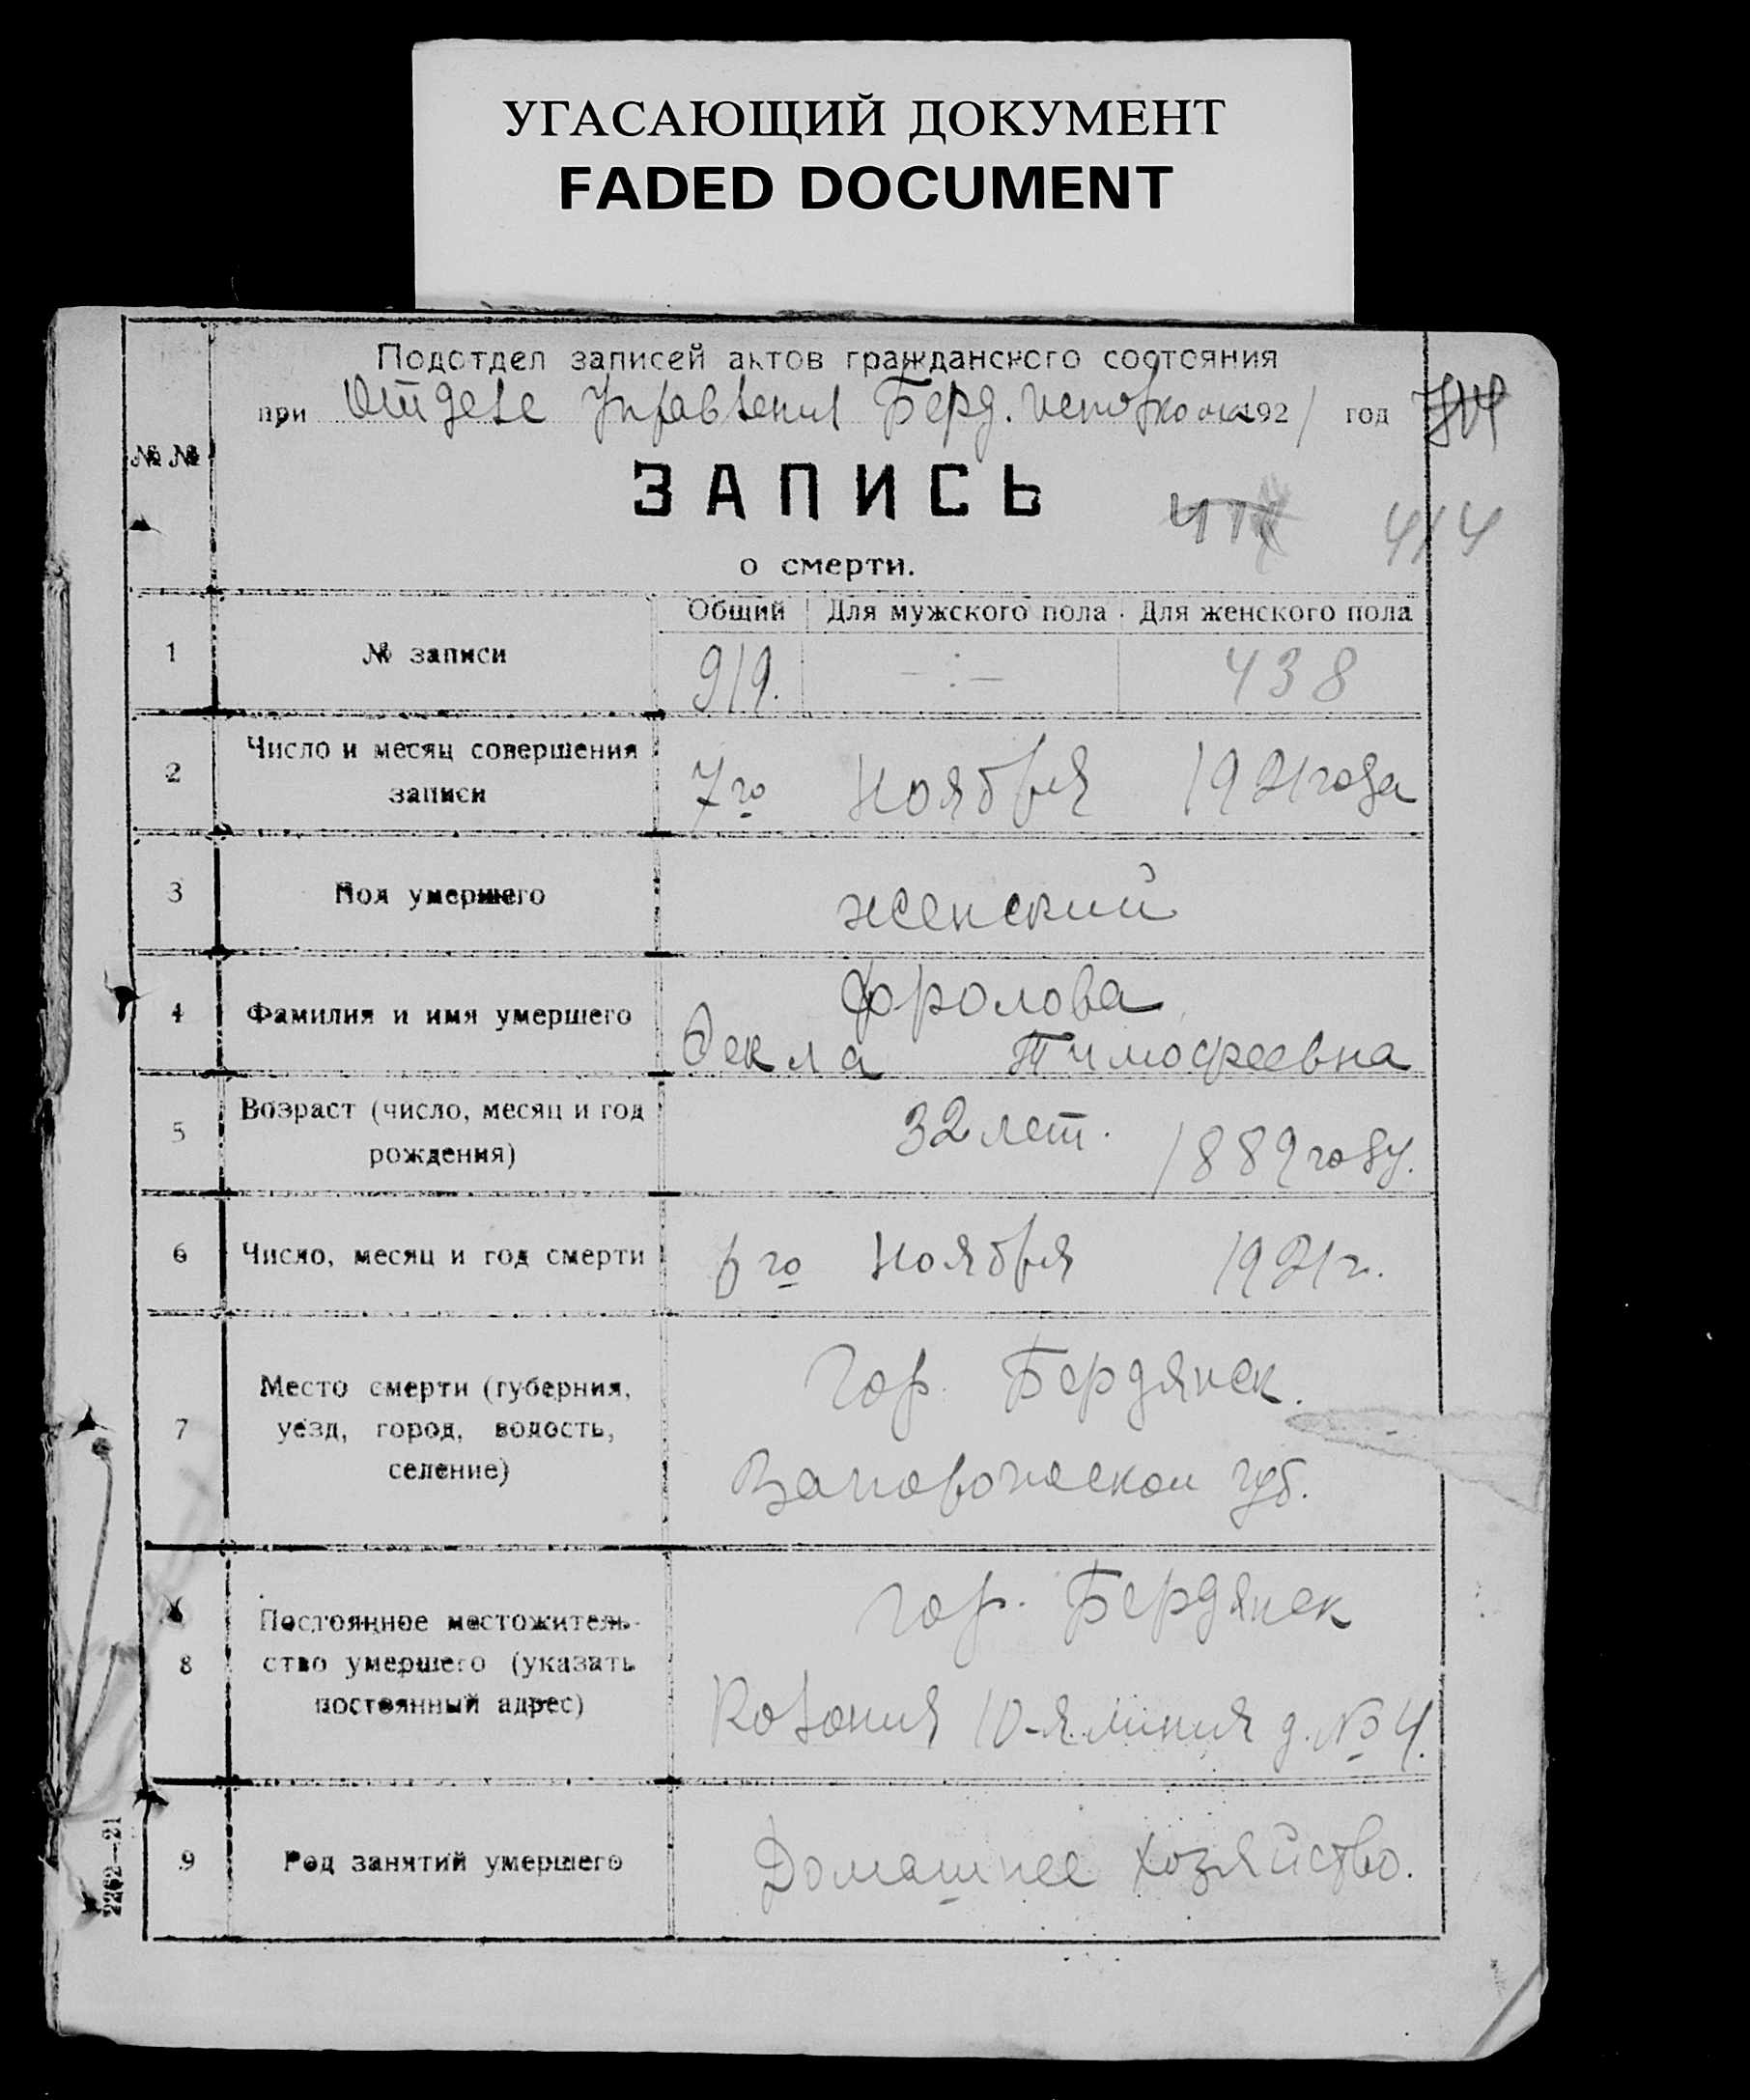 УГАСАЮЩИЙ ДОКУМЕНТ
FADED DOCUMENT
Подотдел записей актов гражданского состояния
при Отделе Управления Берд. Исполкома 1921 год
№№
ЗАПИСЬ
414
о смерти.
Общий Для мужского пола Для женского пола
1 № записи 919. — : — 438
2 Число и месяц совершения
записи
7го Ноября 1921 года
3 Пол умершего женский
4 Фамилия и имя умершего
Фролова
Фекла Тимофеевна
5 Возраст (число, месяц и год
рождения)
32 лет. 1889 году.
6 Число, месяц и год смерти 6го Ноября 1921 г.
7 Место смерти (губерния,
уезд, город, волость,
селение)
Гор. Бердянск.
губ.
8 Постоянное местожитель-
ство умершего (указать
постоянный адрес)
гор. Бердянск
Колония 10-я линия д. № 4.
9 Род занятий умершего Домашнее хозяйство.
2262—21